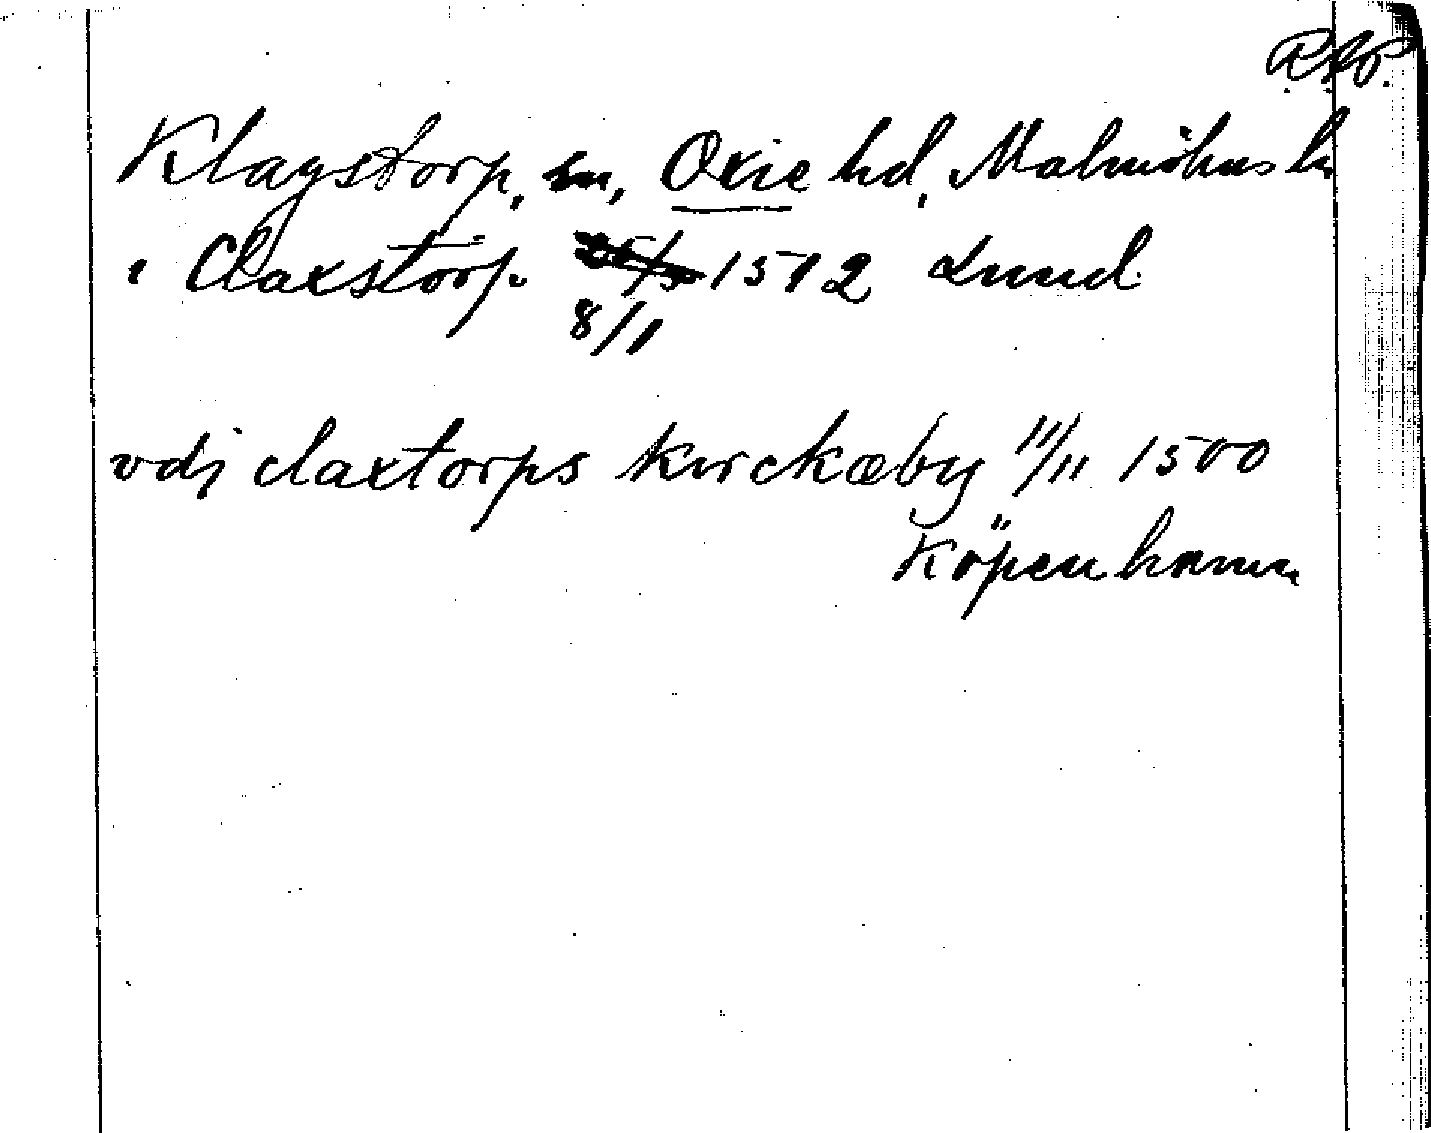 R.A.P.
Klagstorp, sn, Oxie hd, Malmöhus ln
i Claxstorp 1512 Lund
8/1
vdj claxtorps kirckæby 11/11 1500
Köpenhamn